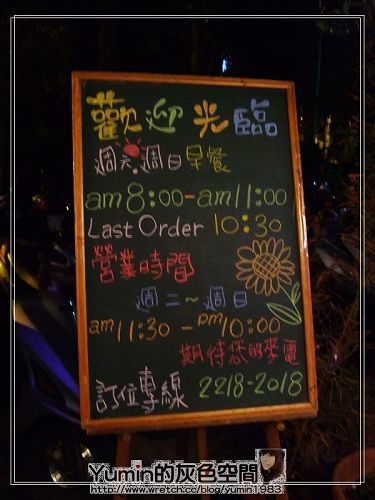 歡迎光臨
週六.週日早餐
am8:00-am11:00
Last Order 10:30
營業時間
週二~週日
am11:30-pm10:00
期待您的來電
訂位專線 2218-2018
Yumin的灰色空間
http://www.wretch.cc/blog/yumin1983